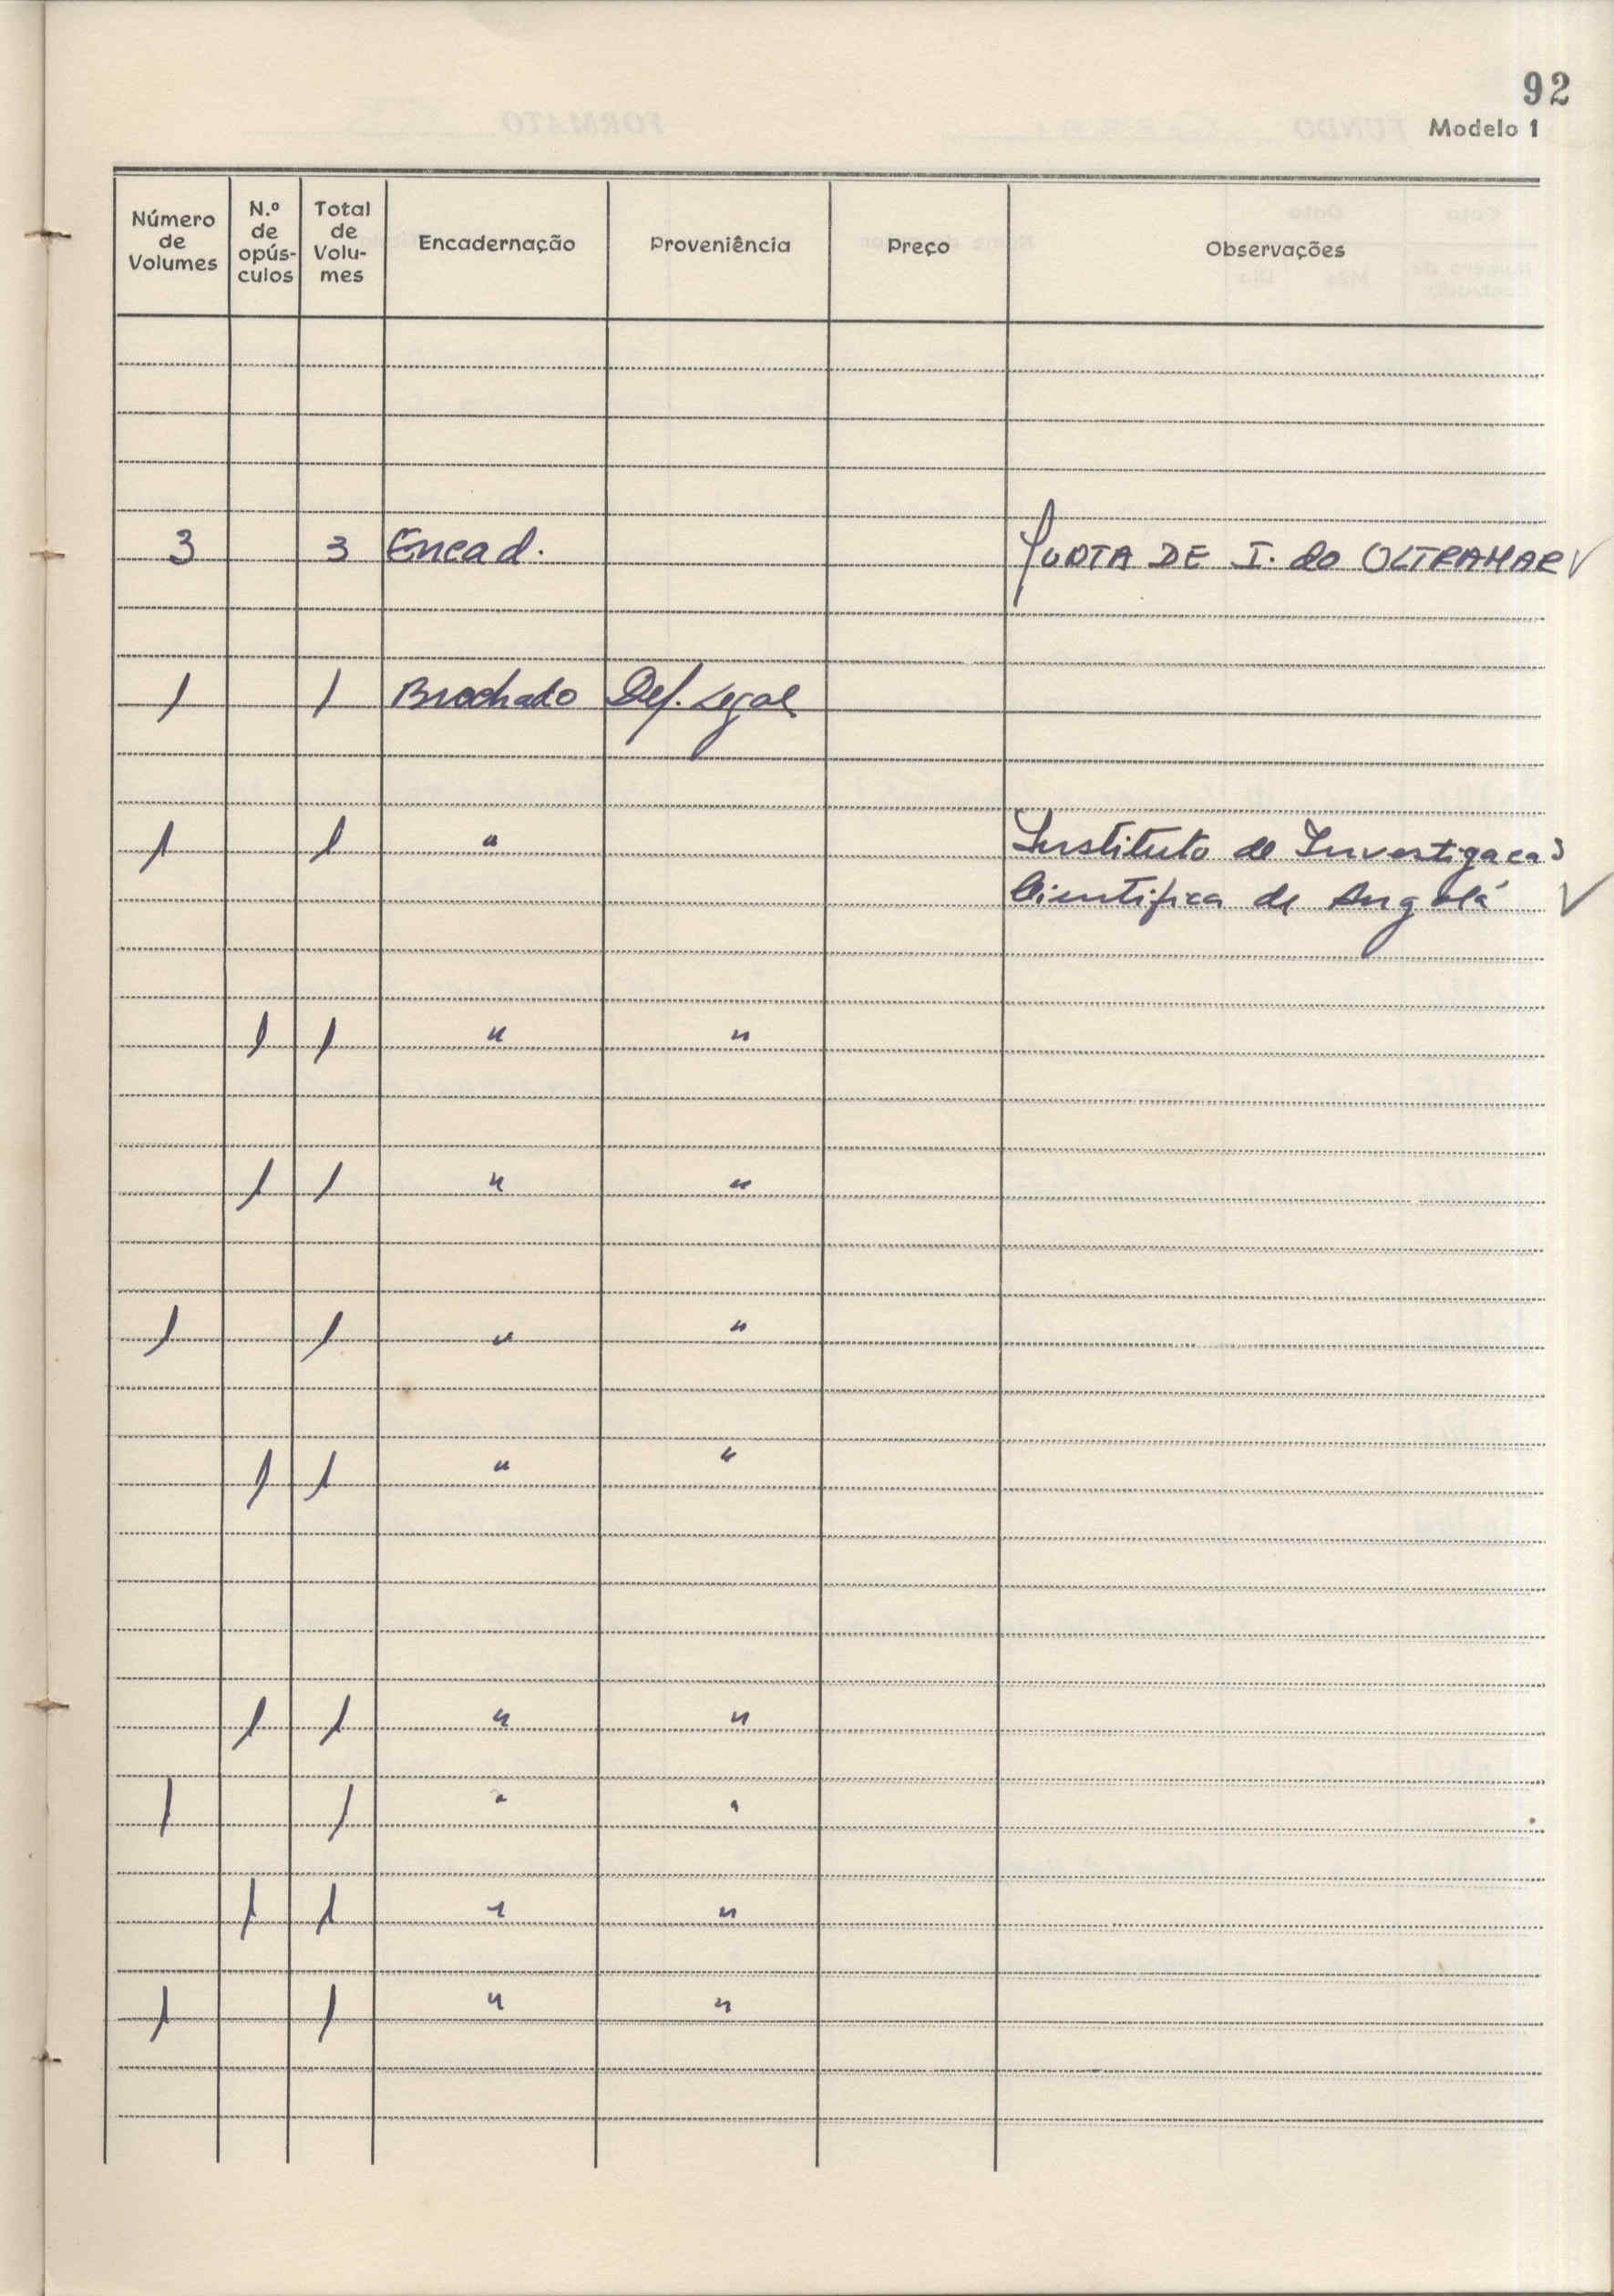 92
Modelo 1
Número de Volumes
N.º de opús- culos
Total de Volu- mes
Encadernação
Proveniência
Preço
Observações
3 3 Encad. JUNTA DE I. do OLTRAMAR ✓
1 1 Brochado Dep. Legal
1 1 " Instituto de Investigacao
Cientifica de Angolá ✓
1 1 " "
1 1 " "
1 1 " "
1 1 " "
1 1 " "
1 1 " "
1 1 " "
1 1 " "